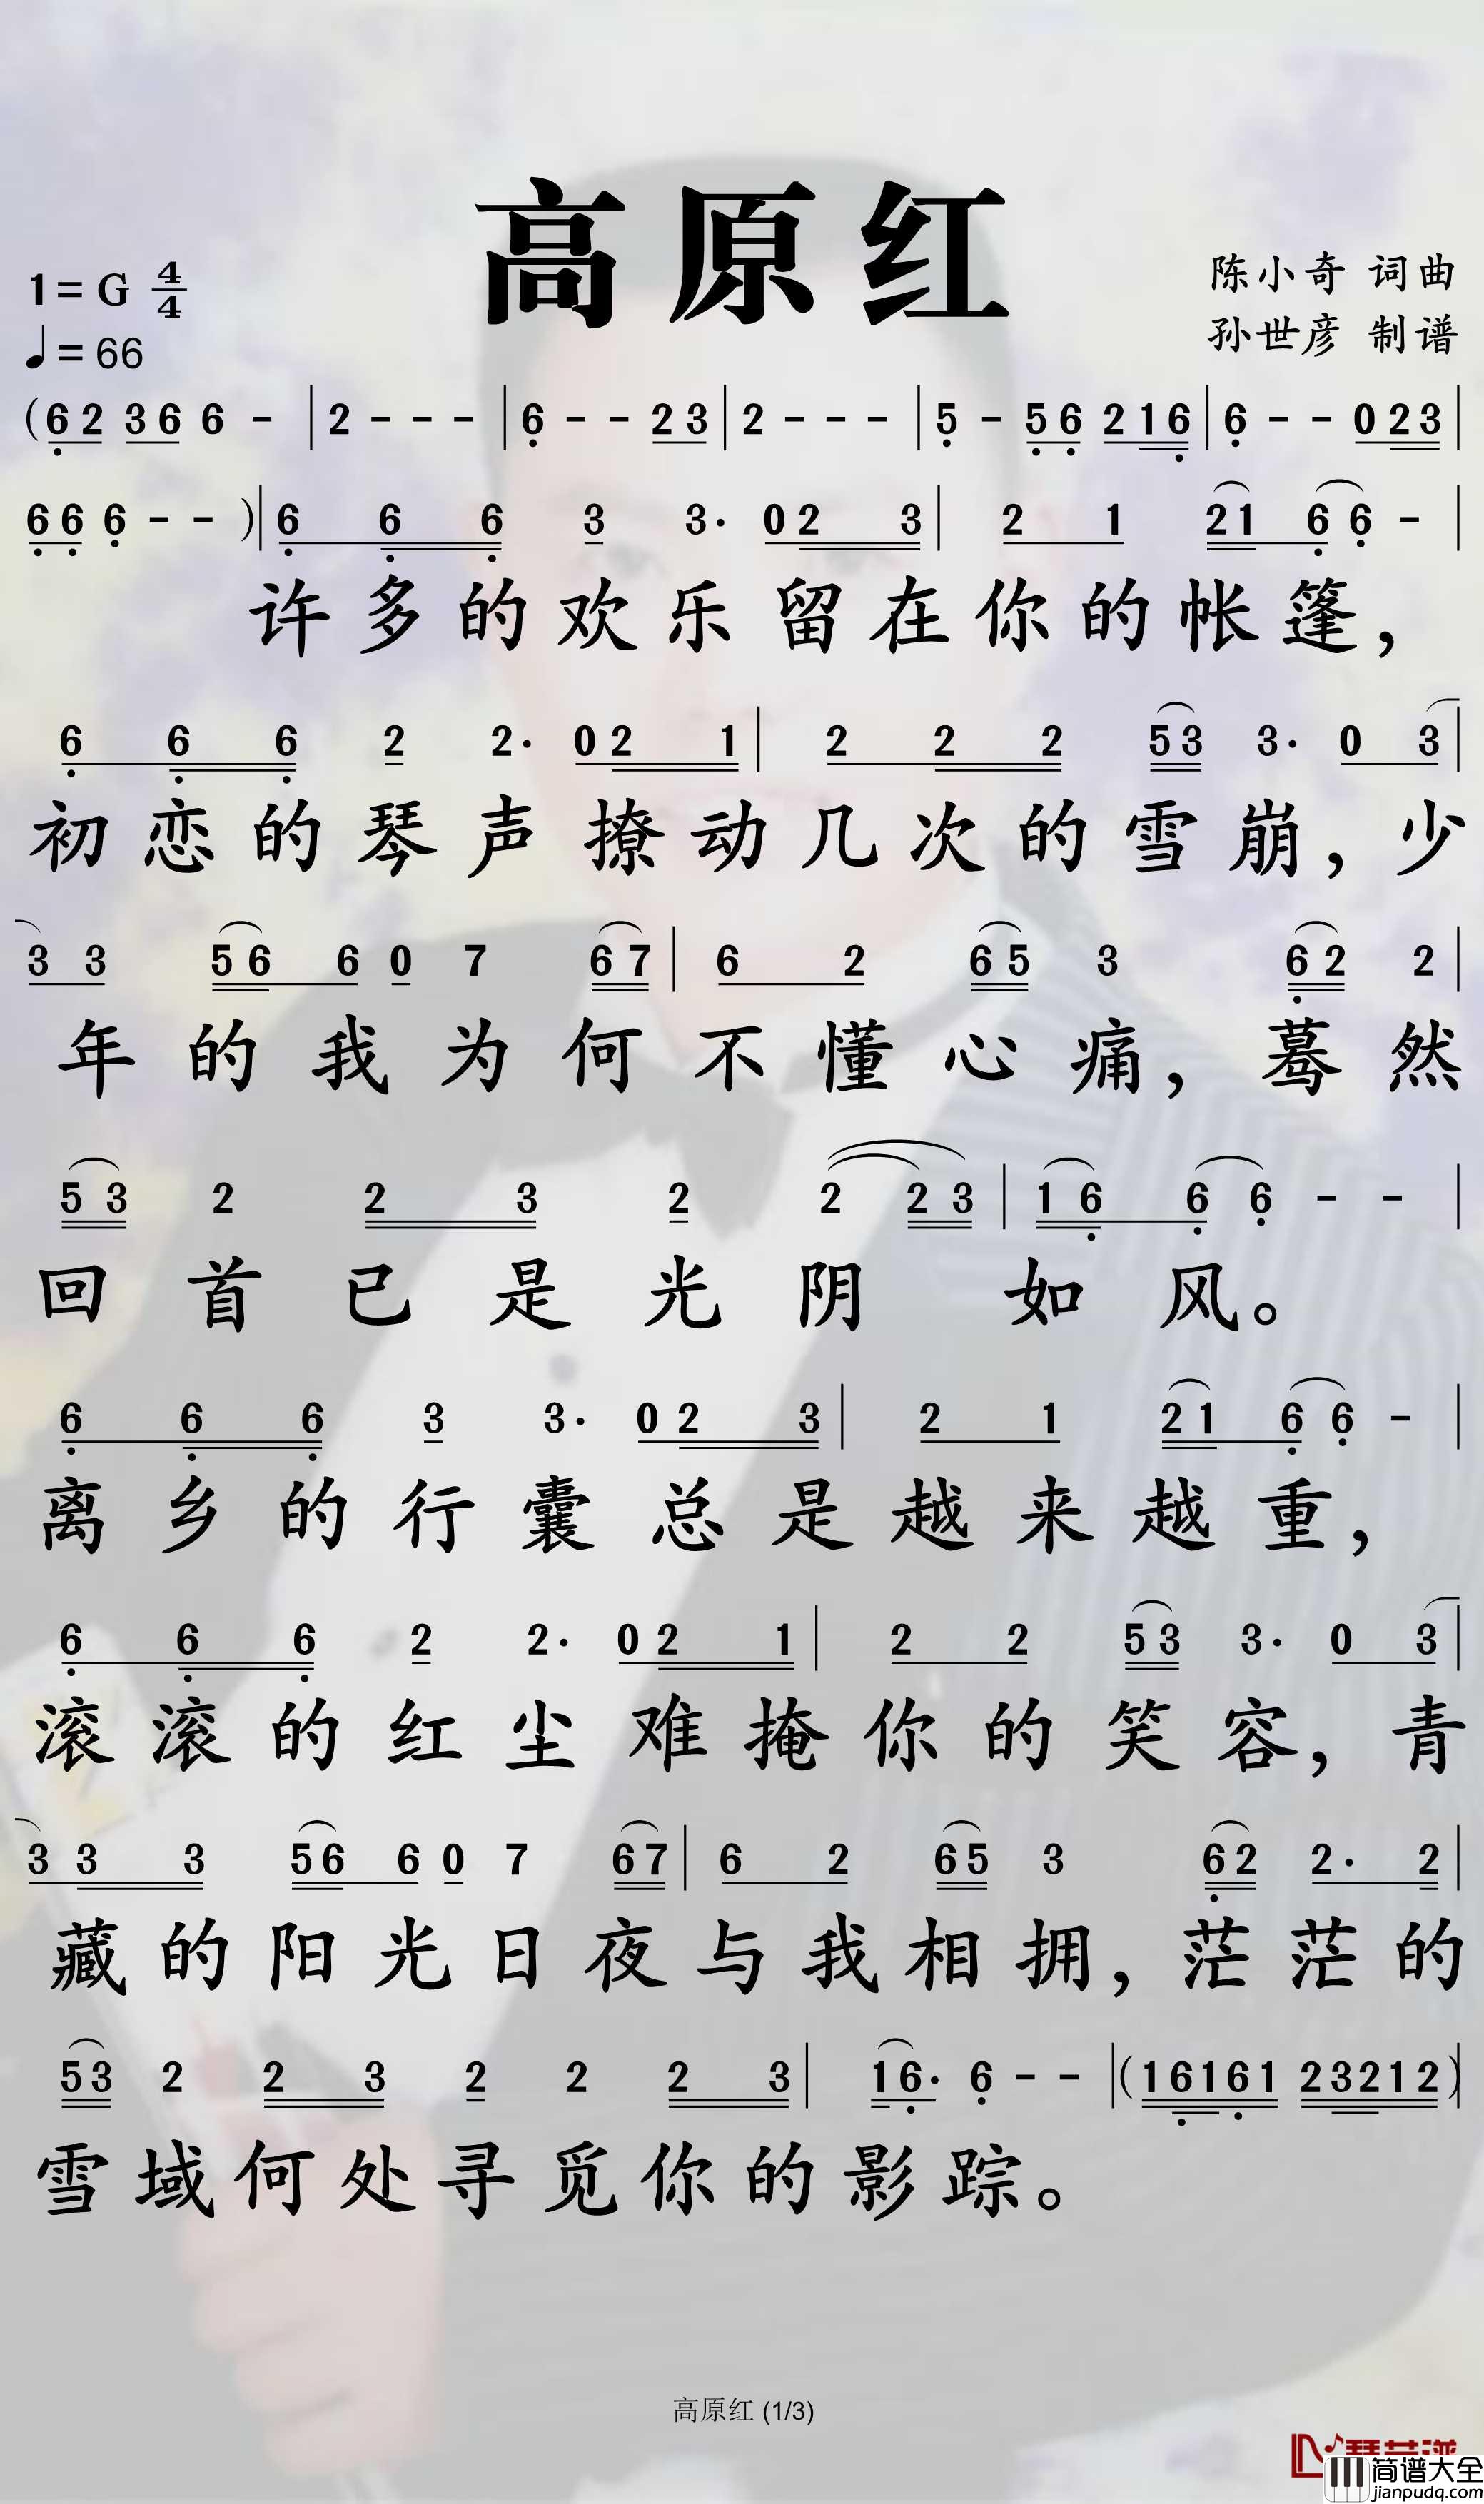 高原红
1=G 4/4
♩=66
陈小奇 词曲
孙世彦 制谱
(6 2 3 6 6 - | 2 - - - | 6 - - 2 3 | 2 - - - | 5 - 5 6 2 1 6 | 6 - - 0 2 3 |
6 6 6 - - )| 6 6 6 3 3· 0 2 3 | 2 1 2 1 6 6 - |
许多的欢乐留在你的帐篷，
6 6 6 2 2· 0 2 1 | 2 2 2 5 3 3· 0 3 |
初恋的琴声撩动几次的雪崩，少
3 3 5 6 6 0 7 6 7 | 6 2 6 5 3 6 2 2 |
年的我为何不懂心痛，蓦然
5 3 2 2 3 2 2 2 3 | 1 6 6 6 - - |
回首已是光阴如风。
6 6 6 3 3· 0 2 3 | 2 1 2 1 6 6 - |
离乡的行囊总是越来越重，
6 6 6 2 2· 0 2 1 | 2 2 5 3 3· 0 3 |
滚滚的红尘难掩你的笑容，青
3 3 3 5 6 6 0 7 6 7 | 6 2 6 5 3 6 2 2· 2 |
藏的阳光日夜与我相拥，茫茫的
5 3 2 2 3 2 2 2 3 | 1 6· 6 - - |(1 6 1 6 1 2 3 2 1 2)|
雪域何处寻觅你的影踪。
高原红 (1/3)
简谱大全
jianpudq.com